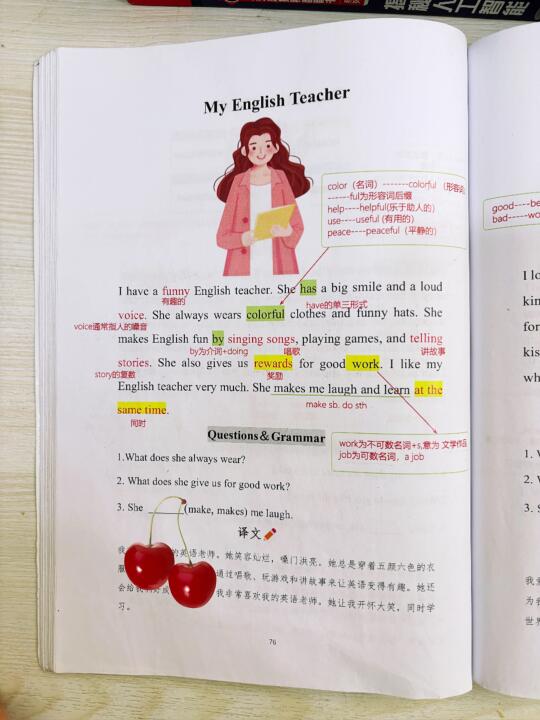 My English Teacher
color（名词）-------colorful（形容词）
------ful为形容词后缀
help----helpful(乐于助人的)
use----useful (有用的)
peace----peaceful（平静的）
I have a funny English teacher. She has a big smile and a loud
有趣的
have的单三形式
voice. She always wears colorful clothes and funny hats. She
voice通常指人的嗓音
makes English fun by singing songs, playing games, and telling
by为介词+doing
唱歌
讲故事
stories. She also gives us rewards for good work. I like my
story的复数
奖励
English teacher very much. She makes me laugh and learn at the
make sb. do sth
same time.
同时
work为不可数名词+s,意为 文学作品
job为可数名词，a job
Questions＆Grammar
1.What does she always wear?
2. What does she give us for good work?
3. She (make, makes) me laugh.
译文
我 的英语老师。她笑容灿烂，嗓门洪亮。她总是穿着五颜六色的衣
服 通过唱歌、玩游戏和讲故事来让英语变得有趣。她还
会给我 我非常喜欢我的英语老师。她让我开怀大笑，同时学
习。
76
good----be
bad-----wo
I lo
kin
for
kis
wh
1. W
2. W
3. S
我
为我
世界